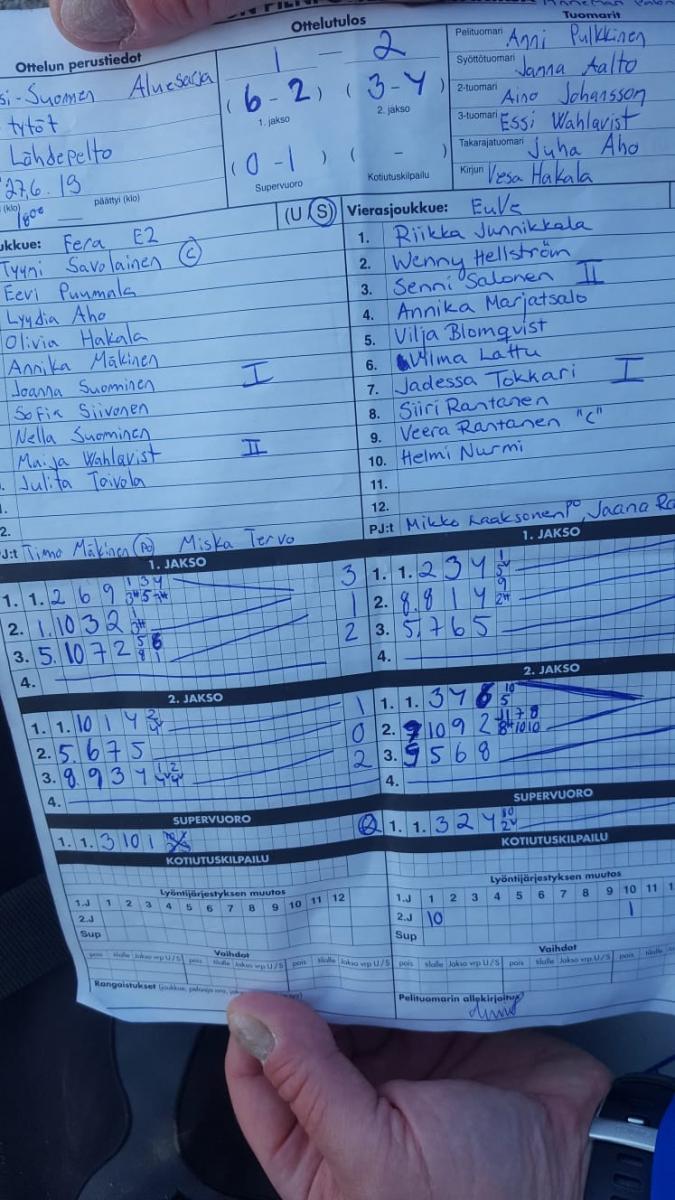 Ottelun perustiedot
si-Suomen Aluesarja
tytöt
Lähdepelto
27.6.19
(klo) 1800 päättyi (klo)
Ottelutulos
1 - 2
(6-2) (3-4)
1. jakso 2. jakso
(0-1) ( - )
Supervuoro Kotiutuskilpailu
Tuomarit
Pelituomari Anni Pulkkinen
Syöttötuomari Janna Aalto
2-tuomari Aino Johansson
3-tuomari Essi Wahlqvist
Takarajatuomari Juha Aho
Kirjuri Vesa Hakala
ukkue: Fera E2 (U / S)
Tyyni Savolainen C
Eevi Puumala
Lyydia Aho
Olivia Hakala
Annika Mäkinen
Joanna Suominen I
Sofia Siivonen
Nella Suominen
Maija Wahlqvist II
Julita Toivola
PJ:t Timo Mäkinen Miska Tervo
Vierasjoukkue: EuVe
1. Riikka Junnikkala
2. Wenny Hellström
3. Senni Salonen II
4. Annika Marjatsalo
5. Vilja Blomqvist
6. Vilma Lattu
7. Jadessa Tokkari I
8. Siiri Rantanen
9. Veera Rantanen "C"
10. Helmi Nurmi
11.
12.
PJ:t Mikko Laaksonen PO, Jaana Ra
1. JAKSO
1. 1. 2 6 9
2. 1. 10 3 2
3. 5. 10 7 2
4.
2. JAKSO
1. 1. 10 1 4
2. 5. 6 7 5
3. 8. 9 3 4
4.
SUPERVUORO
1. 1. 3 10 1
KOTIUTUSKILPAILU
3
1
2
1
0
2
1. JAKSO
1. 1. 2 3 4
2. 8. 8 1 4
3. 5. 7 6 5
4.
2. JAKSO
1. 1. 3 4 6
2. 9 10 9 2
3. 9 5 6 8
4.
SUPERVUORO
1. 1. 3 2 4
KOTIUTUSKILPAILU
Lyöntijärjestyksen muutos
1.J 1 2 3 4 5 6 7 8 9 10 11 12
2.J
Sup
Vaihdot
pois tilalle Jakso vrp U/S pois tilalle Jakso vrp U/S pois tilalle Jakso vrp U/S
Rangaistukset
Lyöntijärjestyksen muutos
1.J 1 2 3 4 5 6 7 8 9 10 11
2.J 10 1
Sup
Vaihdot
pois tilalle Jakso vrp U/S pois tilalle Jakso vrp U/S pois tilalle
Pelituomarin allekirjoitus